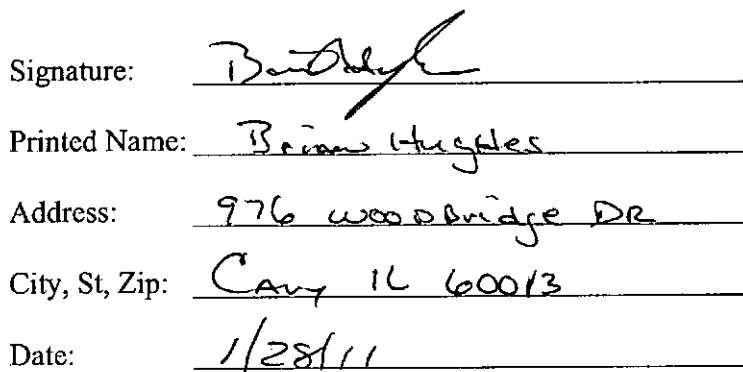 Signature:
Printed Name: Brian Hughes
Address: 976 WOODBridge DR
City, St, Zip: Cary IL 60013
Date: 1/28/11